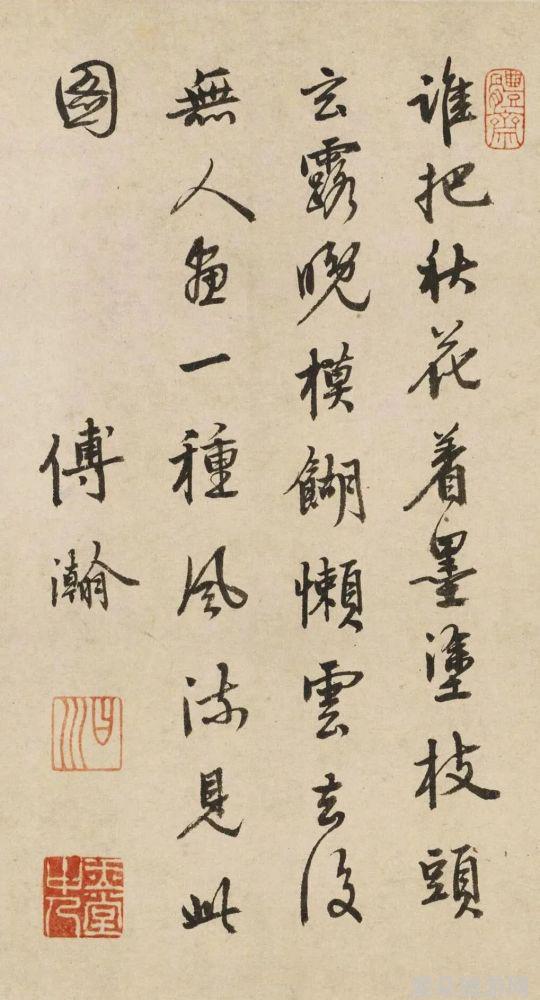 體齋
誰把秋花着墨塗枝頭
玄露晚模餬懶雲去後
無人畫一種風流見此
圖
傅瀚
曰川